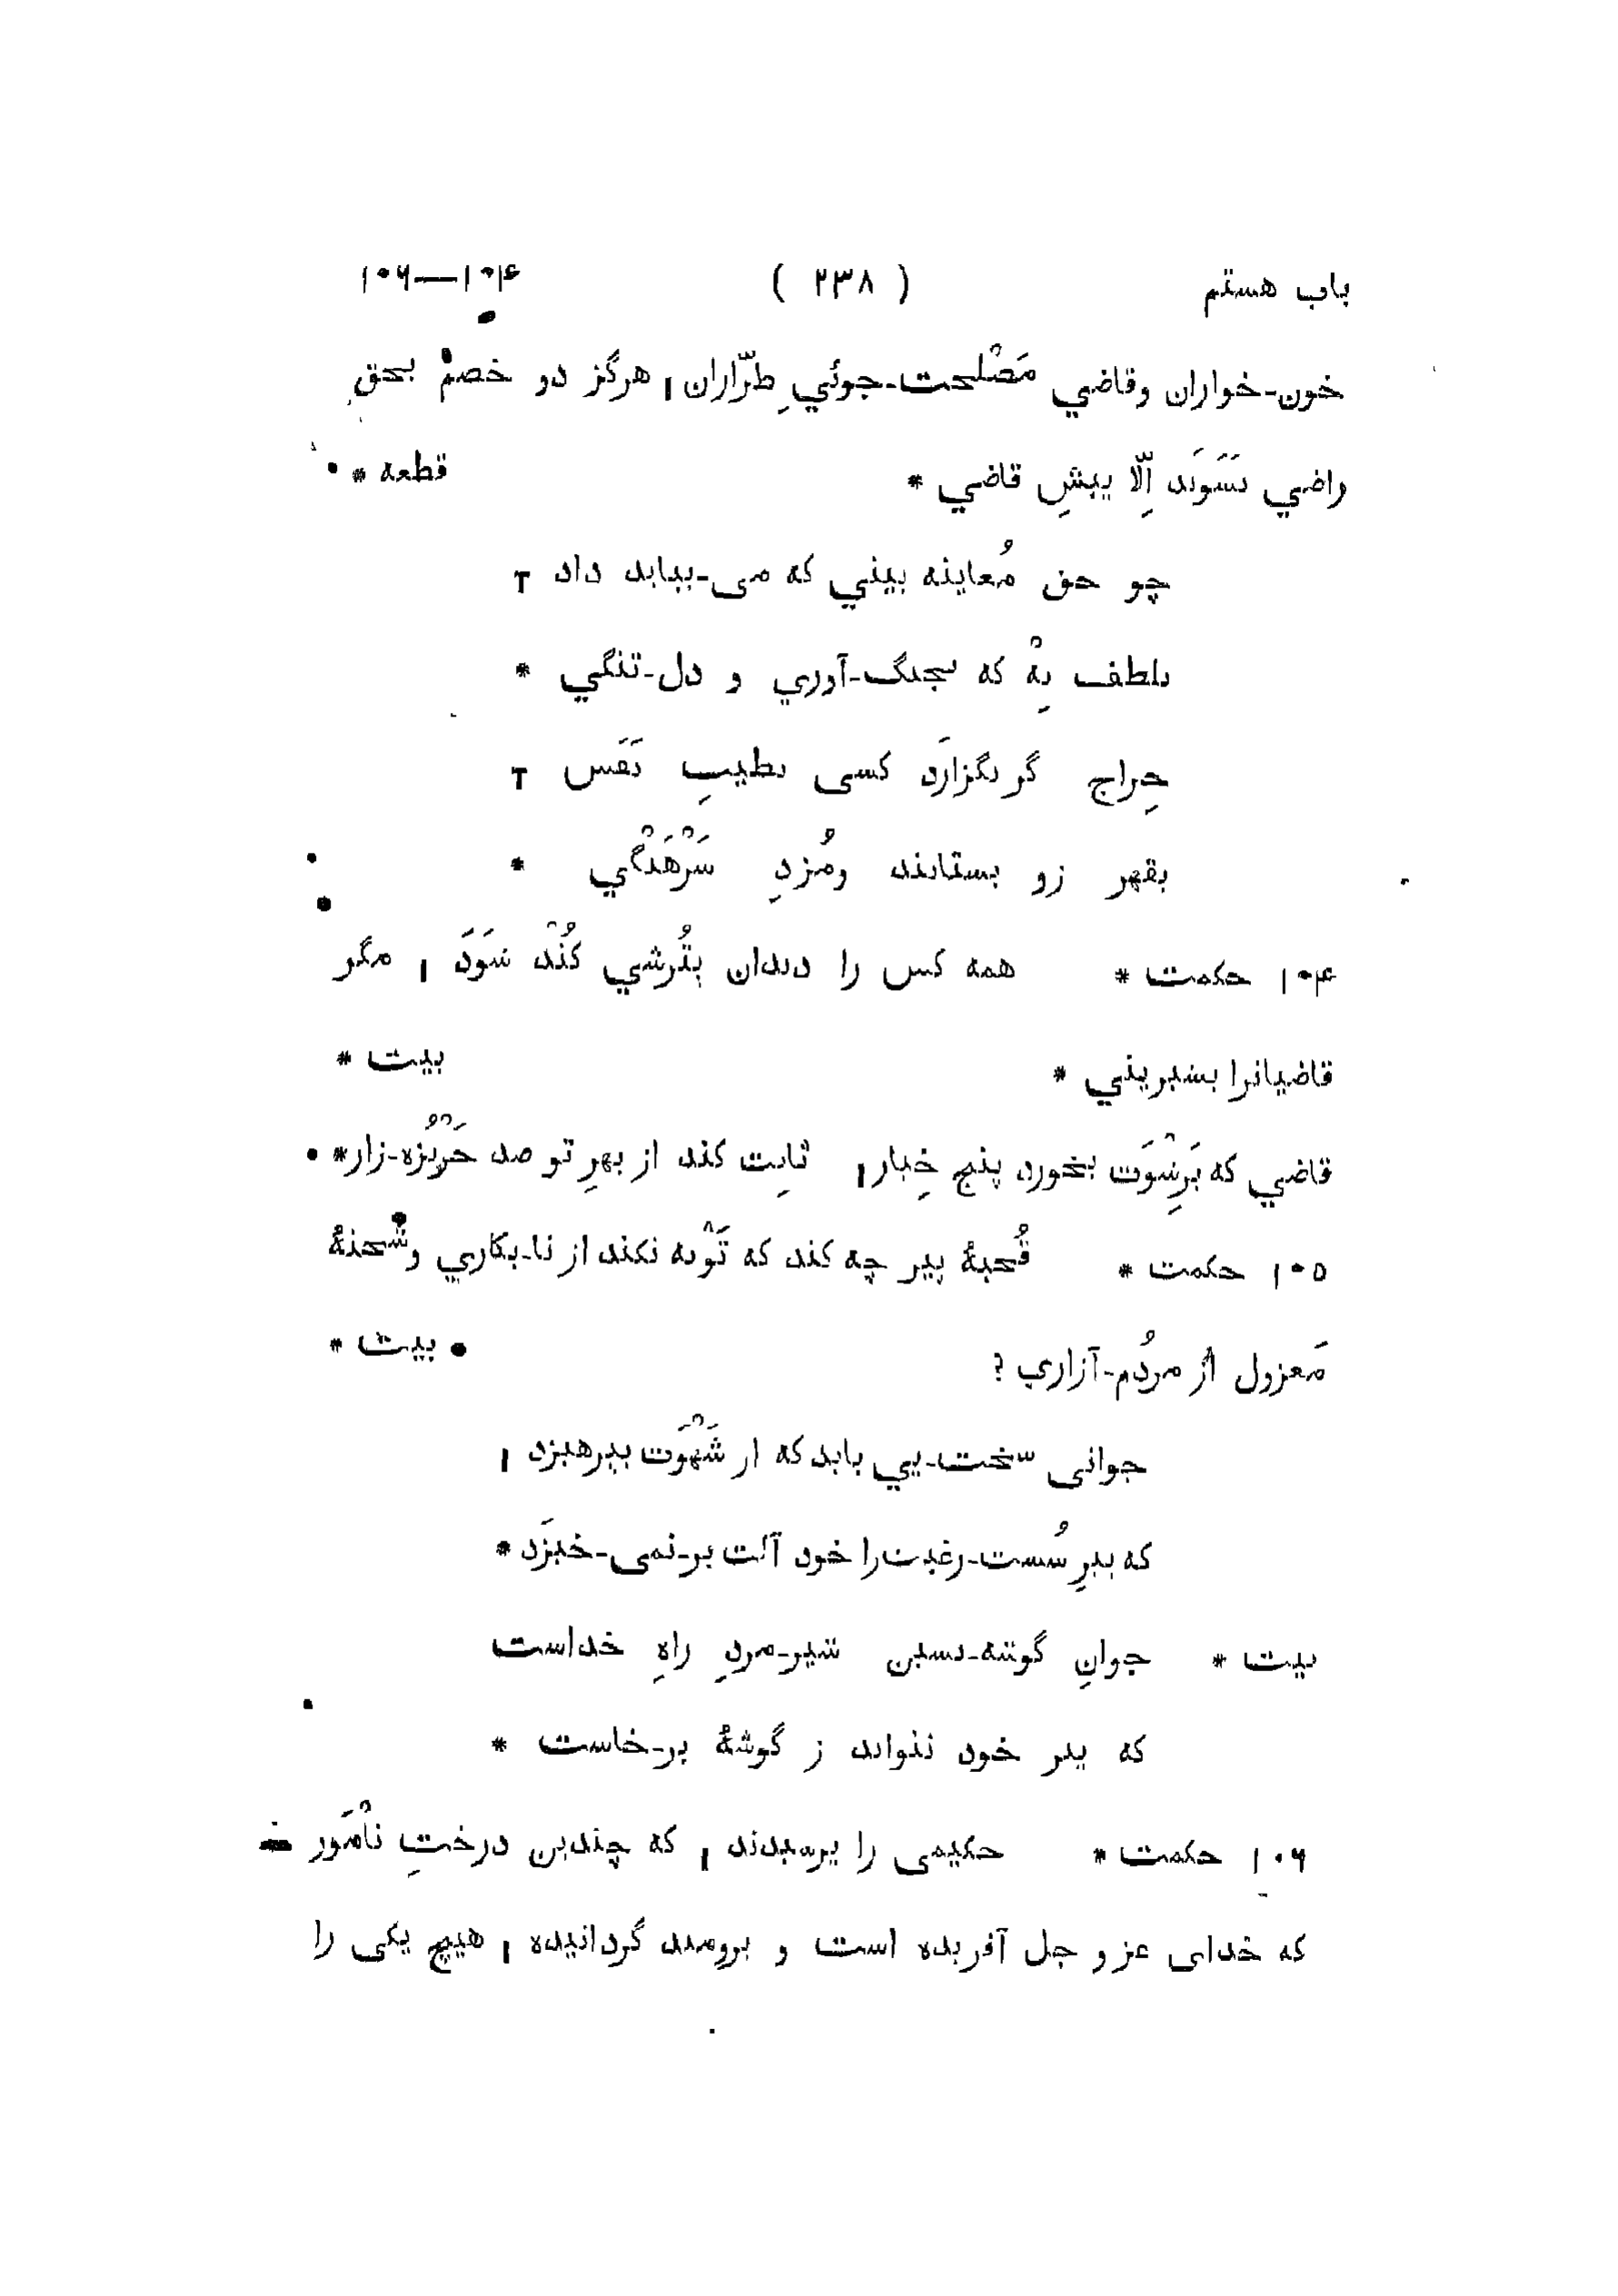 باب هستم ( ۲۳۸ ) ۱۰۴—۱۰۶
خون-خواران وقاضي مَصْلحت-جوئيِ طرّاران، هرگز دو خصم بحق
راضي نشَوَند اِلّا پيشِ قاضي * قطعه *
چو حق مُعاينه بيني كه مى-ببايد داد ۲
بلطف بِهْ كه بجنگ-آوري و دل-تنگي *
خِراج گر نگزارَد كسى بطيبِ نَفَس ۲
بقهر زو بستانند ومُزدِ سَرْهَنْگي *
۱۰۴ حكمت * همه كس را دندان بتُرشي كُنْد شَوَد، مگر
قاضيانرا بشيريني * بيت *
قاضي كه بَرِشْوَت بخورد پنج خِيار، ثابِت كند از بهرِ تو صد خَرْبُزه-زار *
۱۰۵ حكمت * قُحبهٔ پير چه كند كه تَوْبه نكند از نا-بكاري وشحنهٔ
مَعزول از مردُم-آزاري ؟
• بيت *
جوانى سخت-پي بايد كه از شَهْوَت بپرهيزد،
كه پيرِ سُست-رغبت را خود آلت بر-نمى-خيزَد *
بيت * جوانِ گوشه-نشين شير-مردِ راهِ خداست
كه پير خود نتواند ز گوشهٔ بر-خاست *
۱۰۶ حكمت * حكيمى را پرسيدند، كه چندين درختِ نامْوَر
كه خداى عز و جل آفريده است و برومند گردانيده، هيچ يكى را